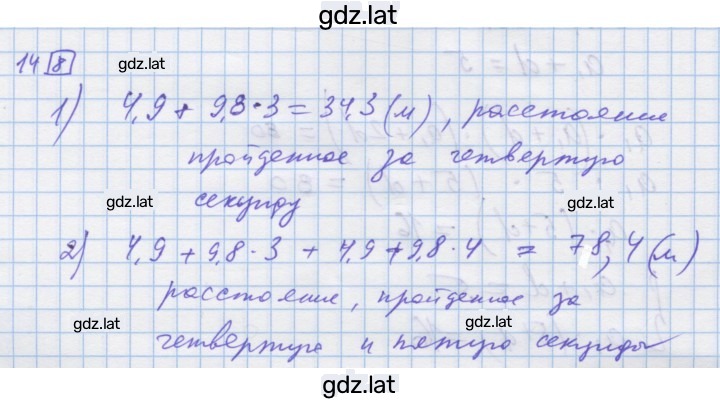 gdz.lat
14 8 gdz.lat
1) 4,9 + 9,8 · 3 = 34,3 (м), расстояние
пройденное за четвертую
gdz.lat секунду gdz.lat
2) 4,9 + 9,8 · 3 + 4,9 + 9,8 · 4 = 78,4 (м)
расстояние, пройденное за
gdz.lat gdz.lat
четвертую и пятую секунды
gdz.lat